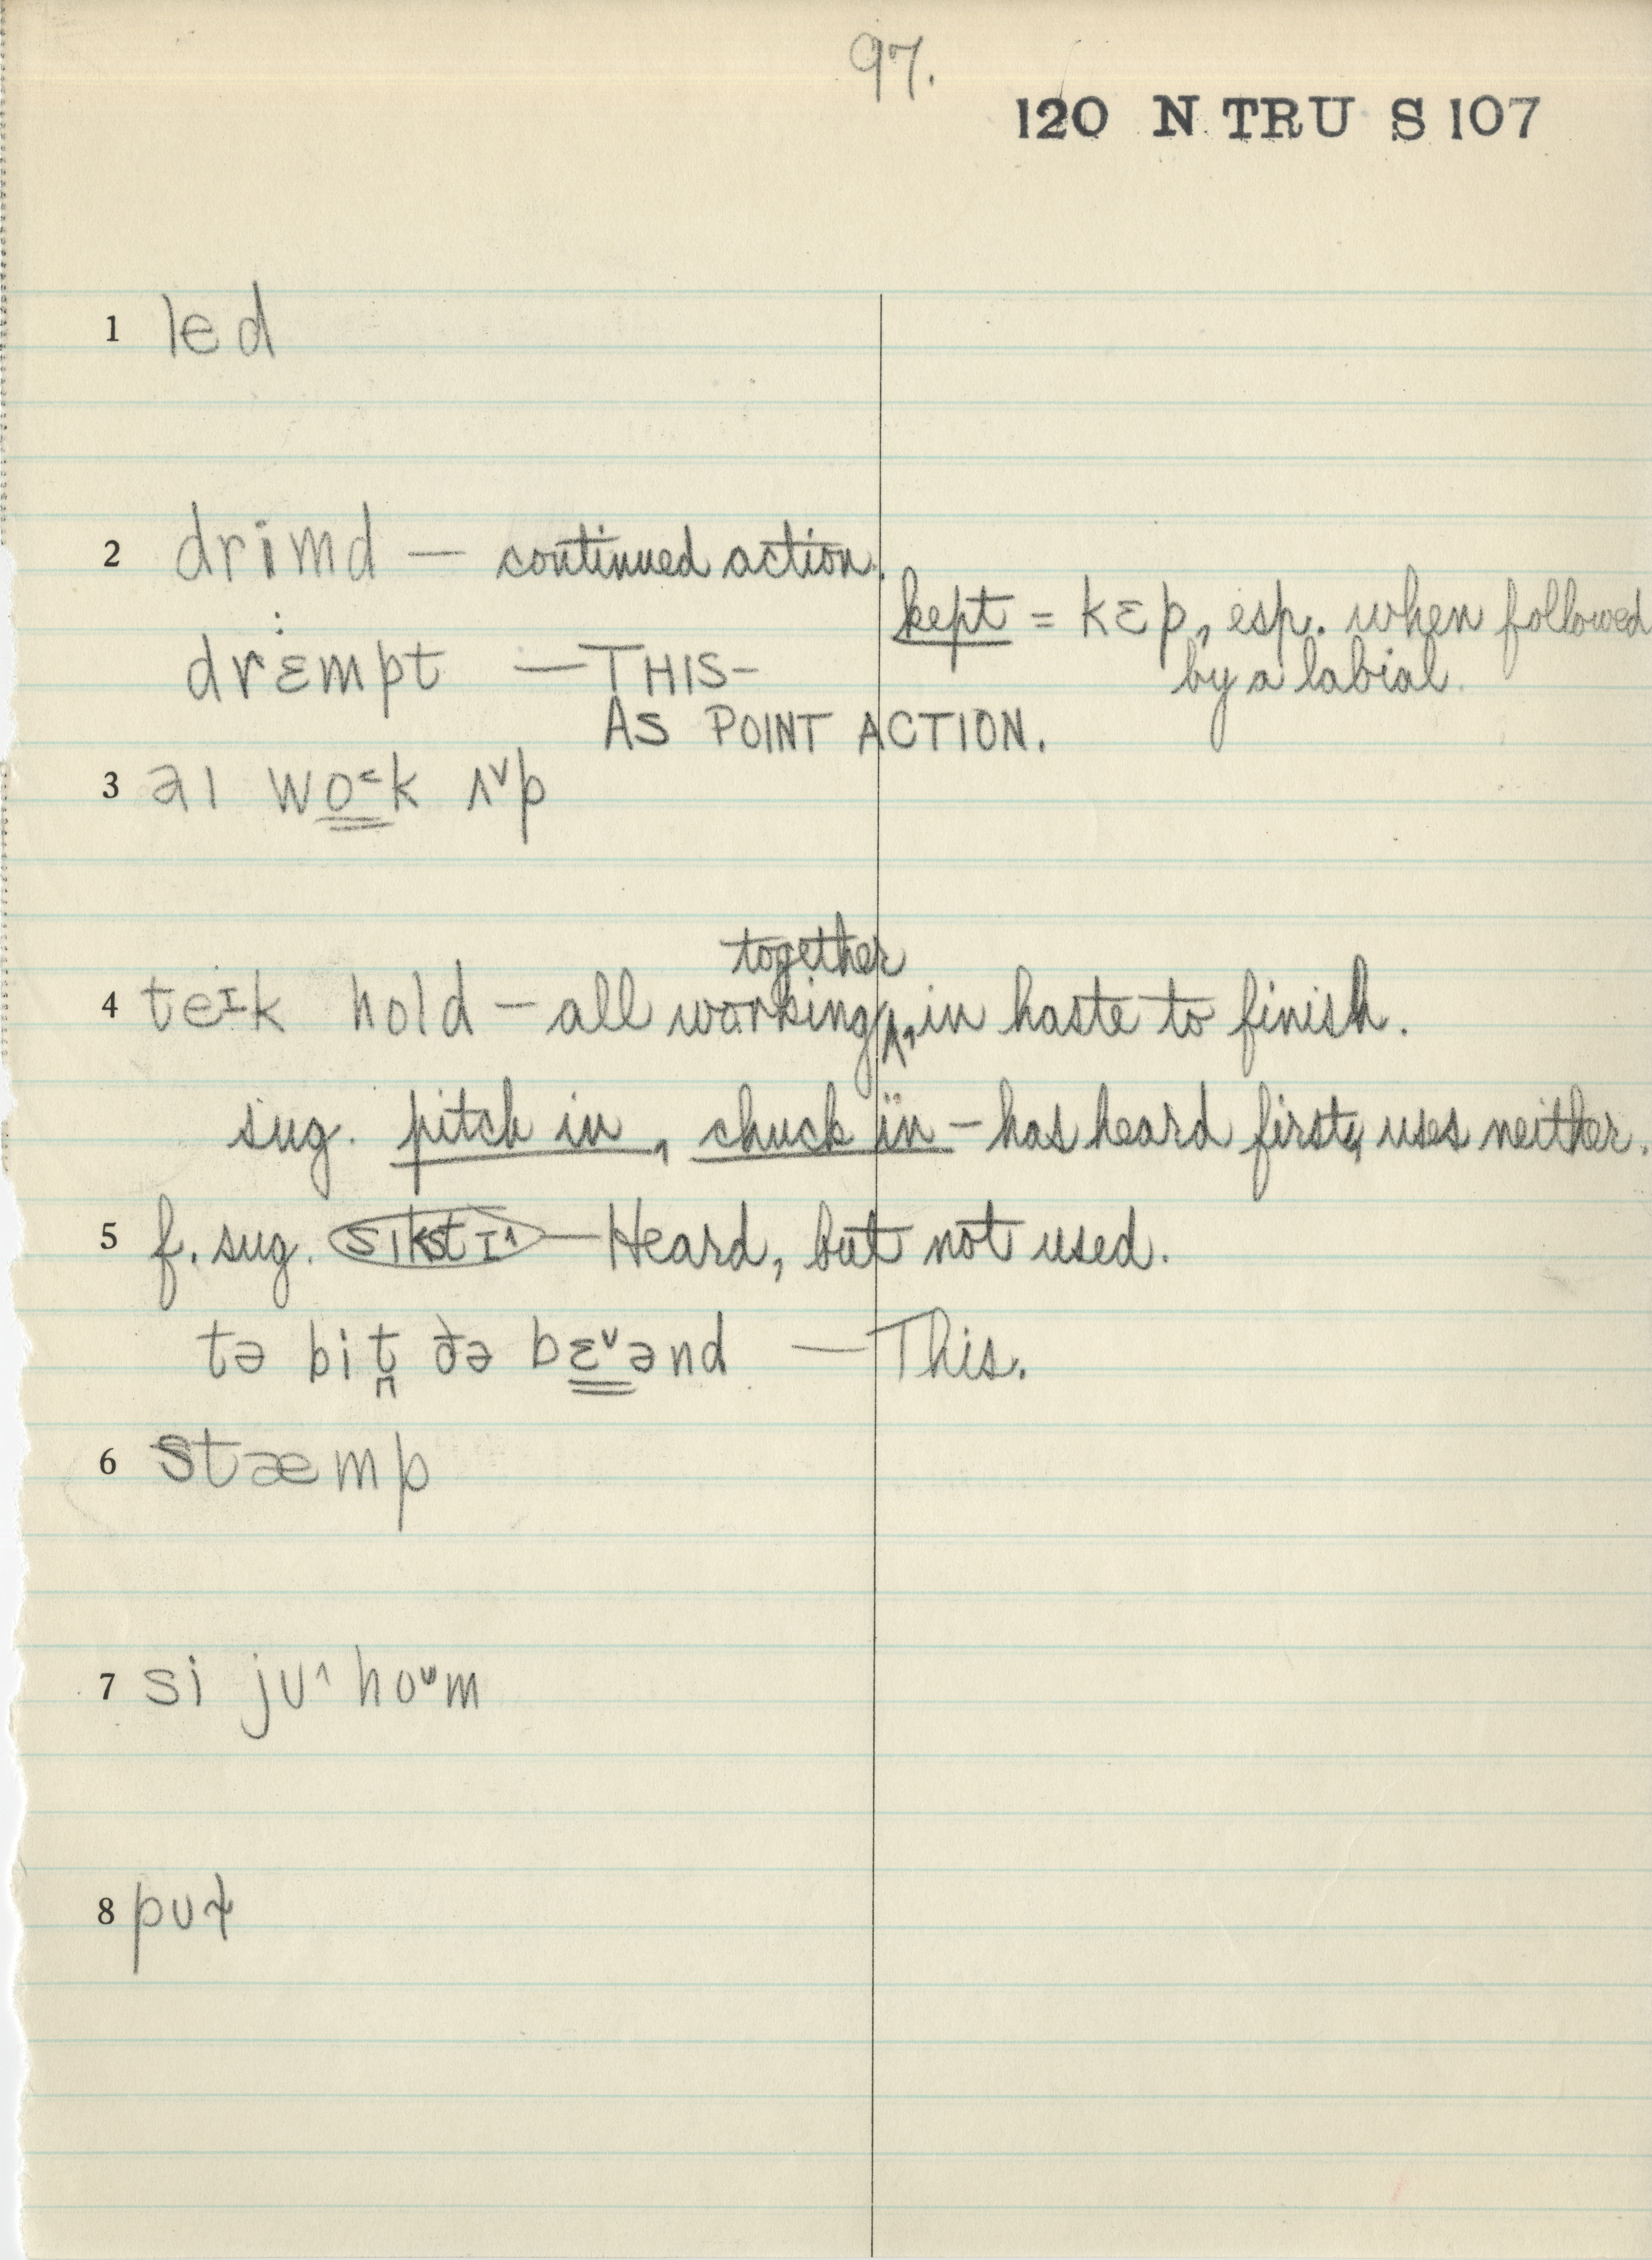 97.
120 N TRU S 107
1 led
2 drimd — continued action.
kept = kɛp, esp. when followed
by a labial.
drɛmpt — THIS-
AS POINT ACTION.
3 aɪ wo˂k ʌ˅p
together
4 teɪk hold — all working ^, in haste to finish.
sug. pitch in, chuck in — has heard first, uses neither.
5 f. sug. sɪkstɪ˄ — Heard, but not used.
tə bit̪ ðə bɛ˅ənd — This.
6 stæmp
7 si jᴜ˄ hoᶷm
8